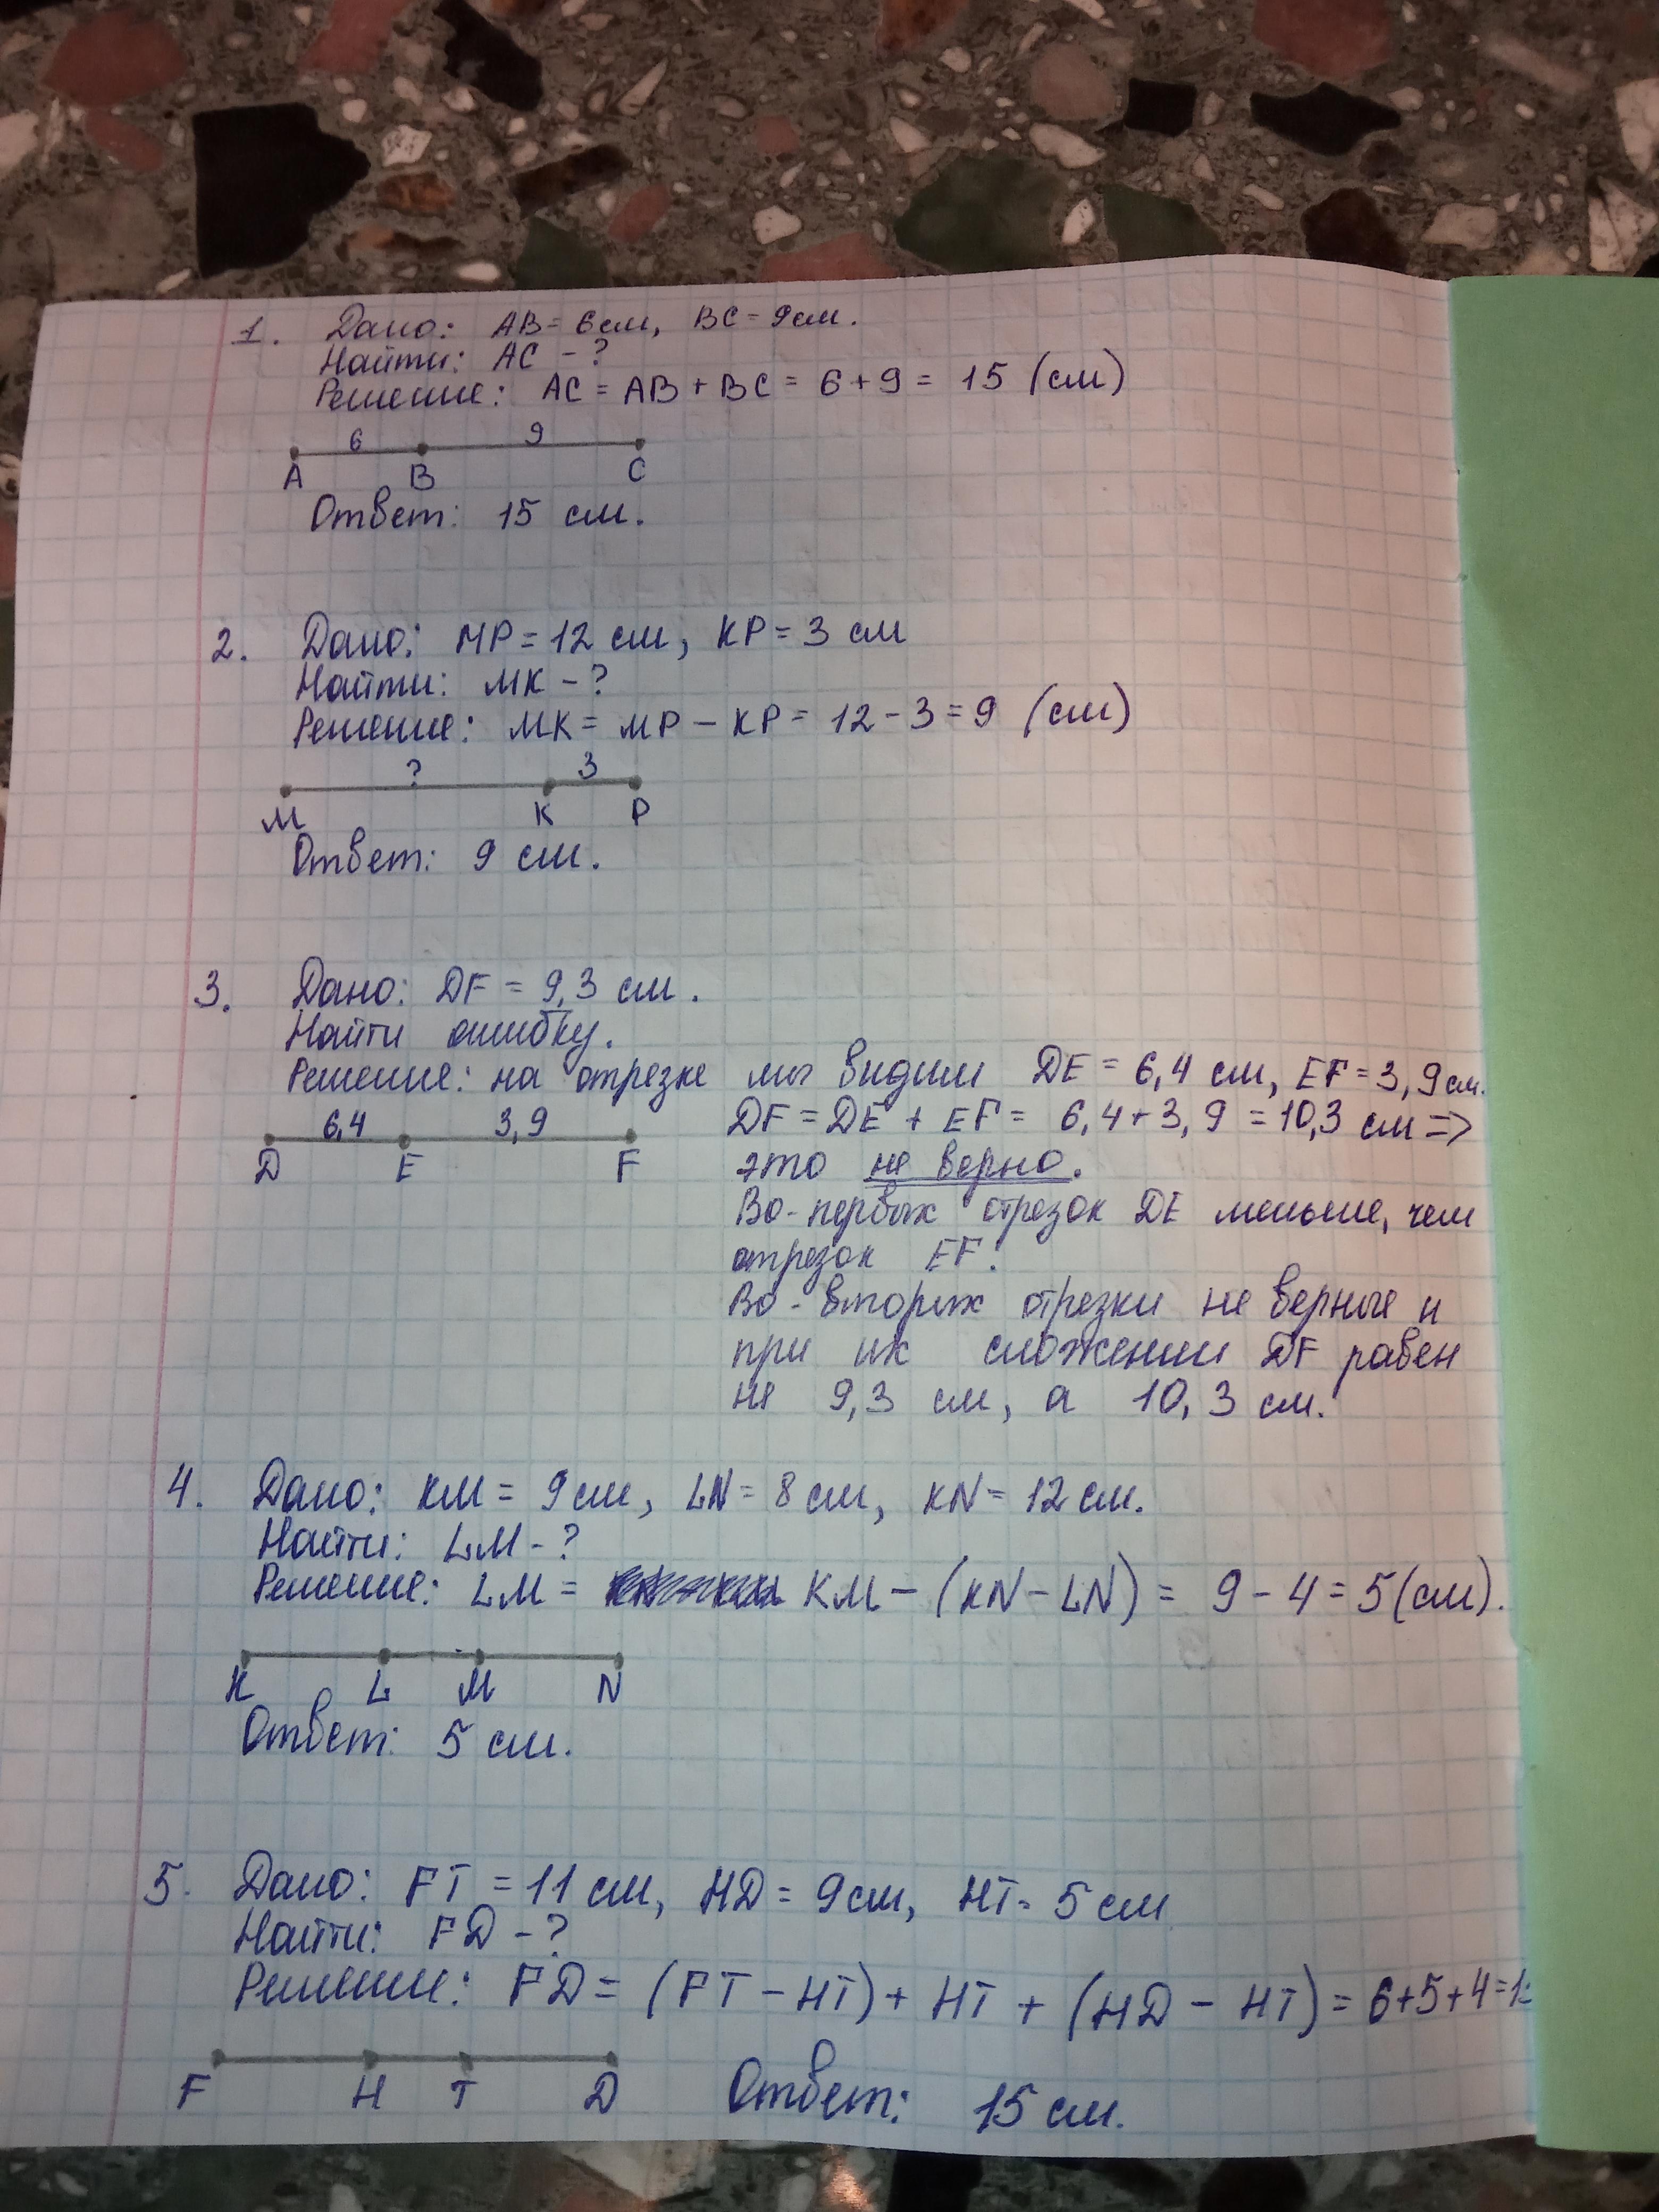 1. Дано: AB = 6 см, BC = 9 см.
Найти: AC - ?
Решение: AC = AB + BC = 6 + 9 = 15 (см)
6 9
A B C
Ответ: 15 см.
2. Дано: MP = 12 см, KP = 3 см
Найти: MK - ?
Решение: MK = MP - KP = 12 - 3 = 9 (см)
? 3
M K P
Ответ: 9 см.
3. Дано: DF = 9,3 см.
Найти ошибку.
Решение: на отрезке мы видим DE = 6,4 см, EF = 3,9 см.
6,4 3,9
D E F
DF = DE + EF = 6,4 + 3,9 = 10,3 см =>
это не верно.
Во-первых отрезок DE меньше, чем
отрезок EF!
Во-вторых отрезки не верные и
при их сложении DF равен
не 9,3 см, а 10,3 см.
4. Дано: KM = 9 см, LN = 8 см, KN = 12 см.
Найти: LM - ?
Решение: LM = KM - (KN - LN) = 9 - 4 = 5 (см).
K L M N
Ответ: 5 см.
5. Дано: FT = 11 см, HD = 9 см, HT = 5 см
Найти: FD - ?
Решение: FD = (FT - HT) + HT + (HD - HT) = 6+5+4=1
F H T D
Ответ: 15 см.